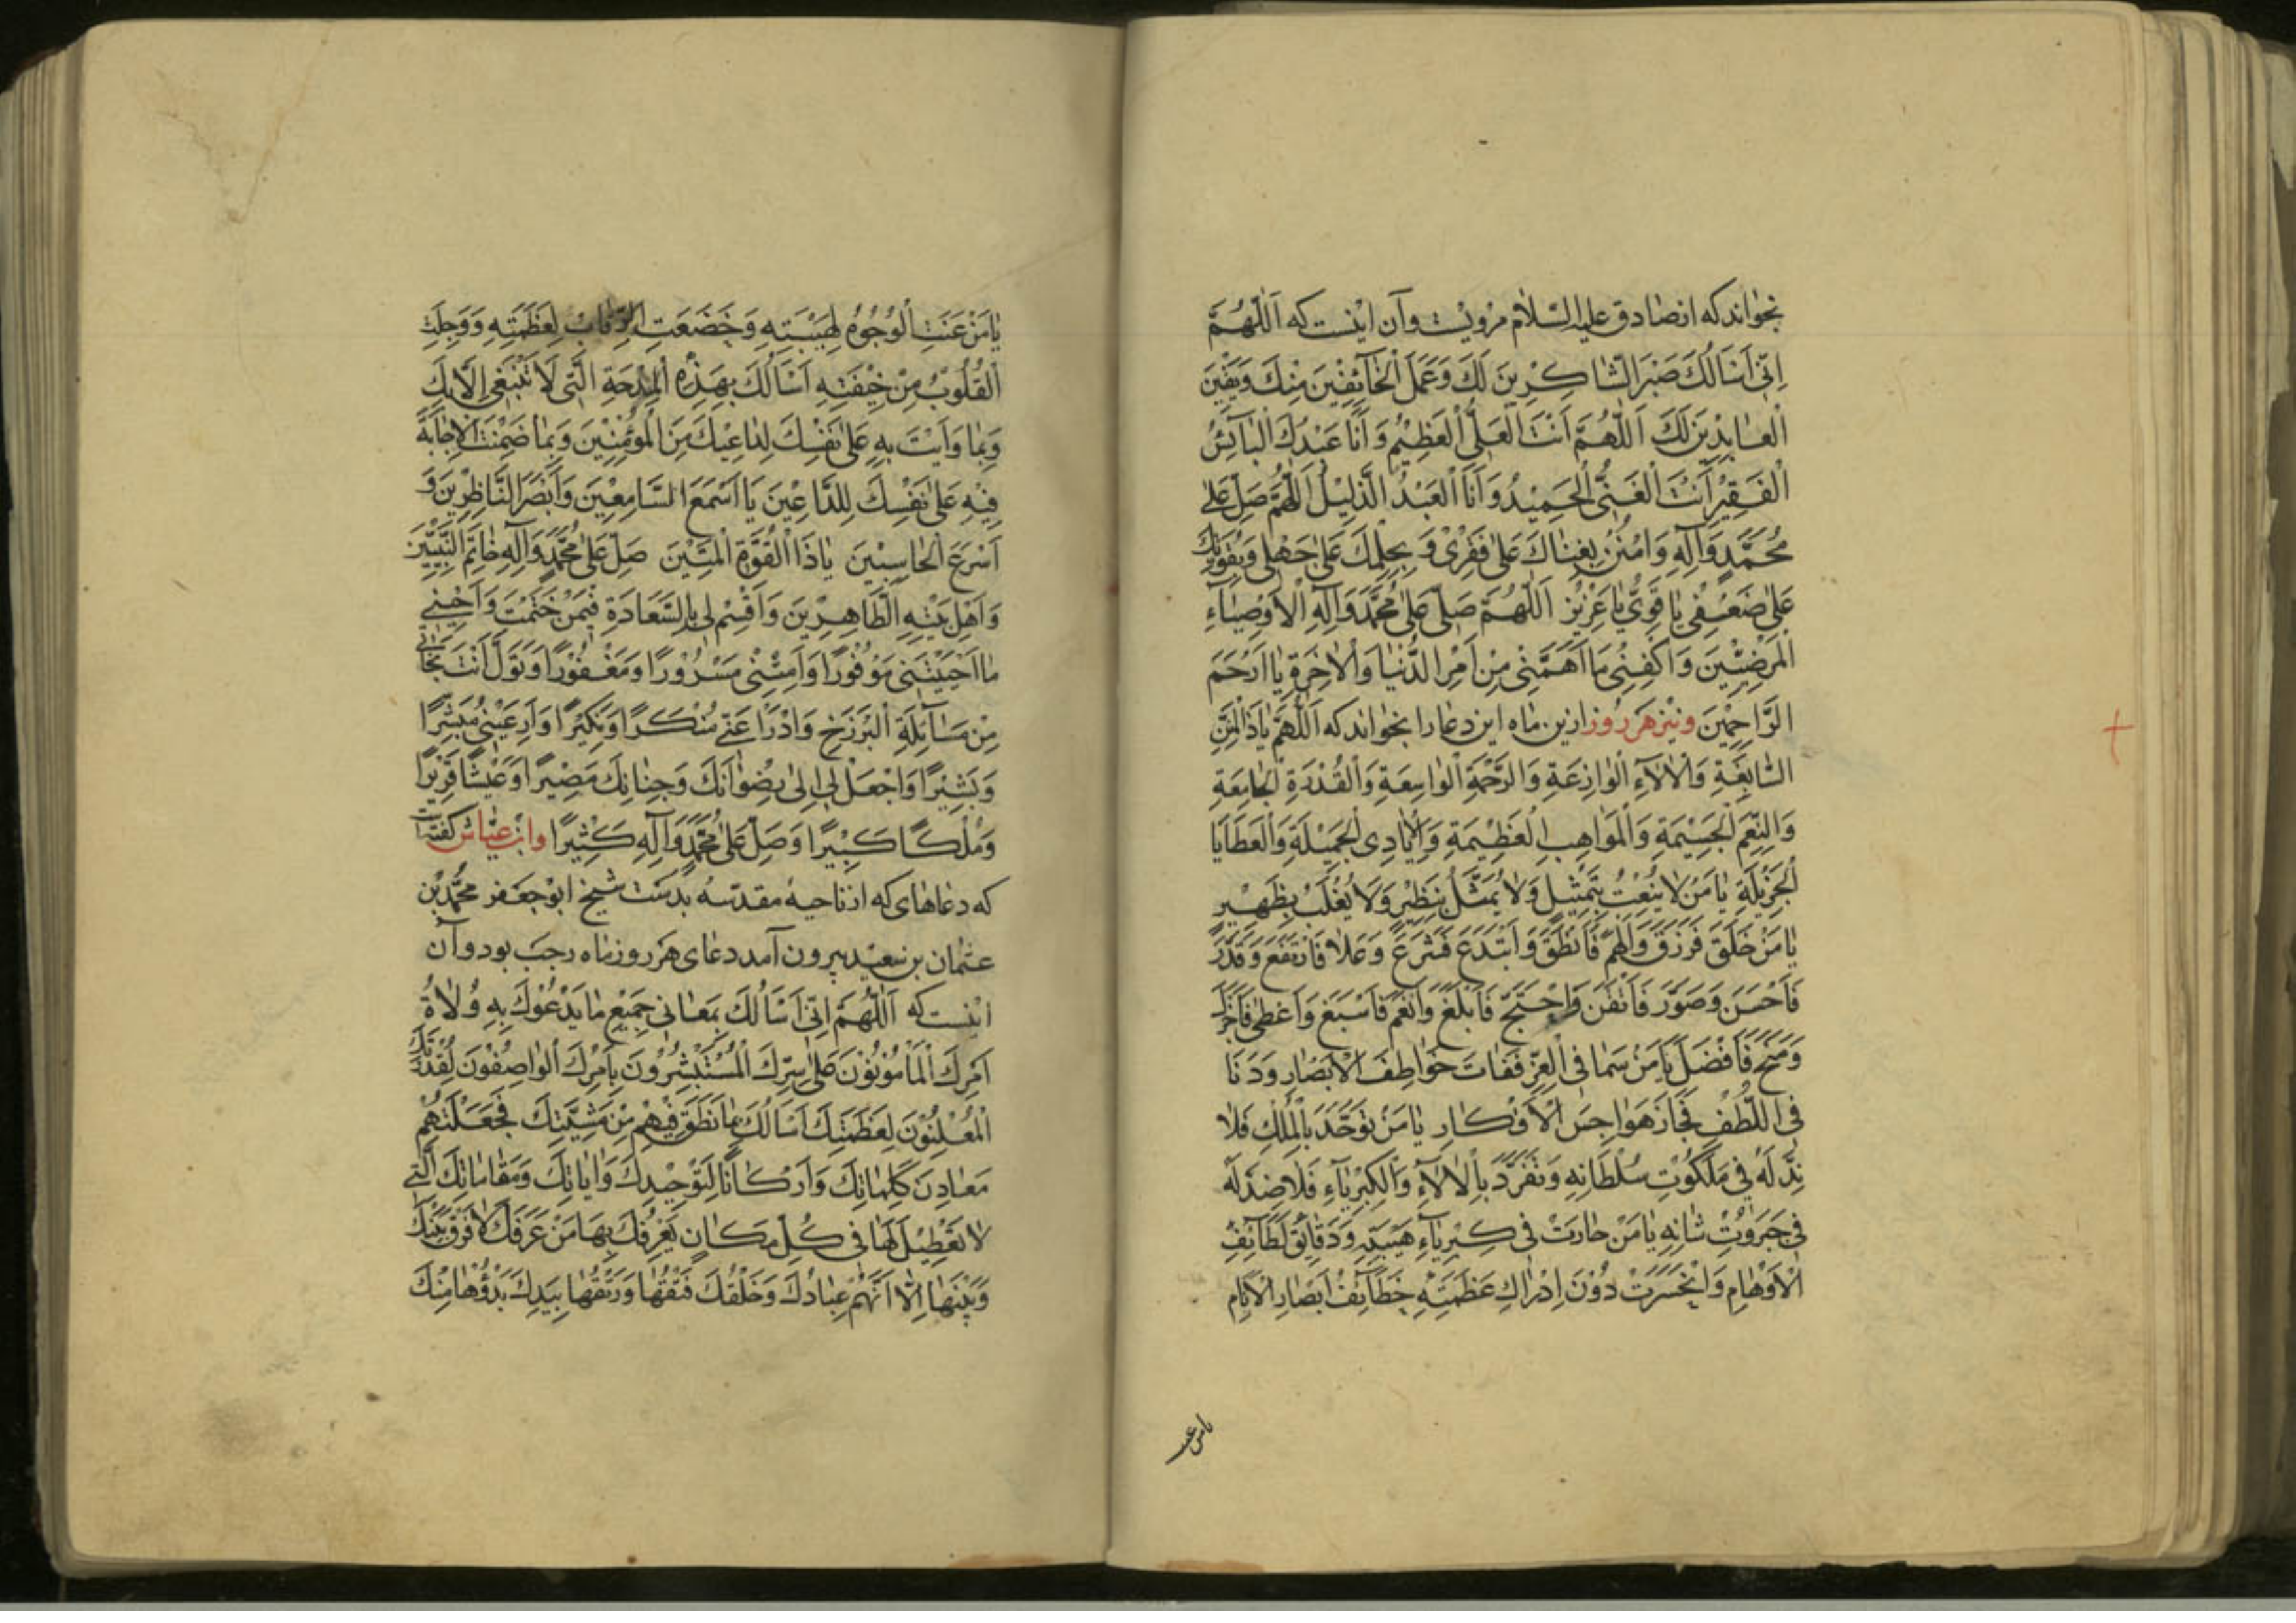 بخواند که از صادق علیه السّلام مرویست و آن اینست که اَللّهُمَّ
اِنّی اَسْاَلُكَ صَبْرَ الشّاکِرِینَ لَكَ وَعَمَلَ الْخآئِفینَ مِنْكَ وَیَقینَ
الْعابِدینَ لَكَ اَللّهُمَّ اَنْتَ الْعَلِیُّ الْعَظیمُ وَ اَنَا عَبْدُكَ الْبآئِسُ
الْفَقیرُ اَنْتَ الْغَنِیُّ الْحَمیدُ وَ اَنَا الْعَبْدُ الذَّلیلُ اَللّهُمَّ صَلِّ عَلی
مُحَمَّدٍ وَآلِهِ وَامْنُنْ بِغِناكَ عَلی فَقْری وَ بِحِلْمِكَ عَلی جَهْلی وَبِقُوَّتِكَ
عَلی ضَعْفی یا قَوِیُّ یا عَزیزُ اَللّهُمَّ صَلِّ عَلی مُحَمَّدٍ وَ الِهِ الْاَوْصِیآءِ
الْمَرْضِیّینَ وَ اکْفِنی ما اَهَمَّنی مِنْ اَمْرِ الدُّنْیا وَالْاخِرَةِ یا اَرْحَمَ
الرّاحِمینَ ونیز هر روز ازین ماه این دعا را بخواند که اَللّهُمَّ یا ذَا الْمِنَنِ
السّابِغَةِ وَالْالآءِ الْوازِعَةِ وَ الرَّحْمَةِ الْواسِعَةِ وَالْقُدْرَةِ الْجامِعَةِ
وَ النِّعَمِ الْجَسیمَةِ وَ الْمَواهِبِ الْعَظیمَةِ وَ الْاَیادِی الْجَمیلَةِ وَالْعَطایا
الْجَزیلَةِ یا مَنْ لا یُنْعَتُ بِتَمْثیلٍ وَ لا یُمَثَّلُ بِنَظیرٍ وَ لا یُغْلَبُ بِظَهیرٍ
یا مَنْ خَلَقَ فَرَزَقَ وَ اَلْهَمَ فَاَنْطَقَ وَ ابْتَدَعَ فَشَرَعَ وَ عَلا فَارْتَفَعَ وَ قَدَّرَ
فَاَحْسَنَ وَصَوَّرَ فَاَتْقَنَ وَ احْتَجَّ فَاَبْلَغَ وَ اَنْعَمَ فَاَسْبَغَ وَ اَعْطی فَاَجْزَلَ
وَ مَنَحَ فَاَفْضَلَ یا مَنْ سَما فِی الْعِزِّ فَفاتَ خَواطِفَ الْاَبْصارِ وَ دَنا
فِی اللُّطْفِ فَجازَ هَواجِسَ الْاَفْکارِ یا مَنْ تَوَحَّدَ بِالْمُلْكِ فَلا
نِدَّ لَهُ فی مَلَکُوتِ سُلْطانِهِ وَ تَفَرَّدَ بِالْالآءِ وَ الْکِبْرِیآءِ فَلا ضِدَّ لَهُ
فی جَبَرُوتِ شانِهِ یا مَنْ حارَتْ فی کِبْرِیآءِ هَیْبَتِهِ وَ دَقآئِقُ لَطآئِفِ
الْاَوْهامِ وَ انْحَسَرَتْ دُونَ اِدْراكِ عَظَمَتِهِ خَطآئِفُ اَبْصارِ الْاَنامِ
یا من عنت
یا مَنْ عَنَتِ الْوُجُوهُ لِهَیْبَتِهِ وَ خَضَعَتِ الرِّقابُ لِعَظَمَتِهِ وَ وَجِلَتِ
الْقُلُوبُ مِنْ خیفَتِهِ اَسْاَلُكَ بِهذِهِ الْمِدْحَةِ الَّتی لا تَنْبَغی اِلّا لَكَ
وَ بِما وَاَیْتَ بِهِ عَلی نَفْسِكَ لِداعیكَ مِنَ الْمُؤْمِنینَ وَ بِما ضَمِنْتَ الْاِجابَةَ
فیهِ عَلی نَفْسِكَ لِلدّاعینَ یا اَسْمَعَ السّامِعینَ وَ اَبْصَرَ النّاظِرینَ وَ
اَسْرَعَ الْحاسِبینَ یا ذَا الْقُوَّةِ الْمَتینَ صَلِّ عَلی مُحَمَّدٍ وَ الِهِ خاتَمِ النَّبِیّینَ
وَ اَهْلِ بَیْتِهِ الطّاهِرینَ وَ اَقْسِمْ لی بِالسَّعادَةِ فیمَنْ خَتَمْتَ وَ اَحْیِنی
ما اَحْیَیْتَنی مَوْفُورًا وَ اَمِتْنی مَسْرُورًا وَ مَغْفُورًا وَ تَوَلَّ اَنْتَ نَجاتی
مِنْ مَسآئِلَةِ الْبَرْزَخِ وَ ادْرَأْ عَنّی مُنْکَرًا وَنَکیرًا وَ اَرِ عَیْنی مُبَشِّرًا
وَ بَشیرًا وَ اجْعَلْ لی اِلی رِضْوانِكَ وَ جِنانِكَ مَصیرًا وَ عَیْشًا قَریرًا
وَ مُلْکًا کَبیرًا وَ صَلِّ عَلی مُحَمَّدٍ وَ الِهِ کَثیرًا وابن عیّاش گفته است
که دعاهای که از ناحیهٔ مقدّسه بدست شیخ ابو جعفر محمّد بن
عثمان بن سعید بیرون آمد دعای هر روز ماه رجب بود و آن
اینست که اَللّهُمَّ اِنّی اَسْاَلُكَ بِمَعانی جَمیعِ ما یَدْعُوكَ بِهِ وُلاةُ
اَمْرِكَ الْمَأْمُونُونَ عَلی سِرِّكَ الْمُسْتَبْشِرُونَ بِاَمْرِكَ الْواصِفُونَ لِقُدْرَتِكَ
الْمُعْلِنُونَ لِعَظَمَتِكَ اَسْاَلُكَ بِما نَطَقَ فیهِمْ مِنْ مَشِیَّتِكَ فَجَعَلْتَهُمْ
مَعادِنَ کَلِماتِكَ وَ اَرْکانًا لِتَوْحیدِكَ وَ ایاتِكَ وَ مَقاماتِكَ الَّتی
لا تَعْطیلَ لَها فی کُلِّ مَکانٍ یَعْرِفُكَ بِها مَنْ عَرَفَكَ لا فَرْقَ بَیْنَكَ
وَ بَیْنَها اِلّا اَنَّهُمْ عِبادُكَ وَ خَلْقُكَ فَتْقُها وَ رَتْقُها بِیَدِكَ بَدْؤُها مِنْكَ